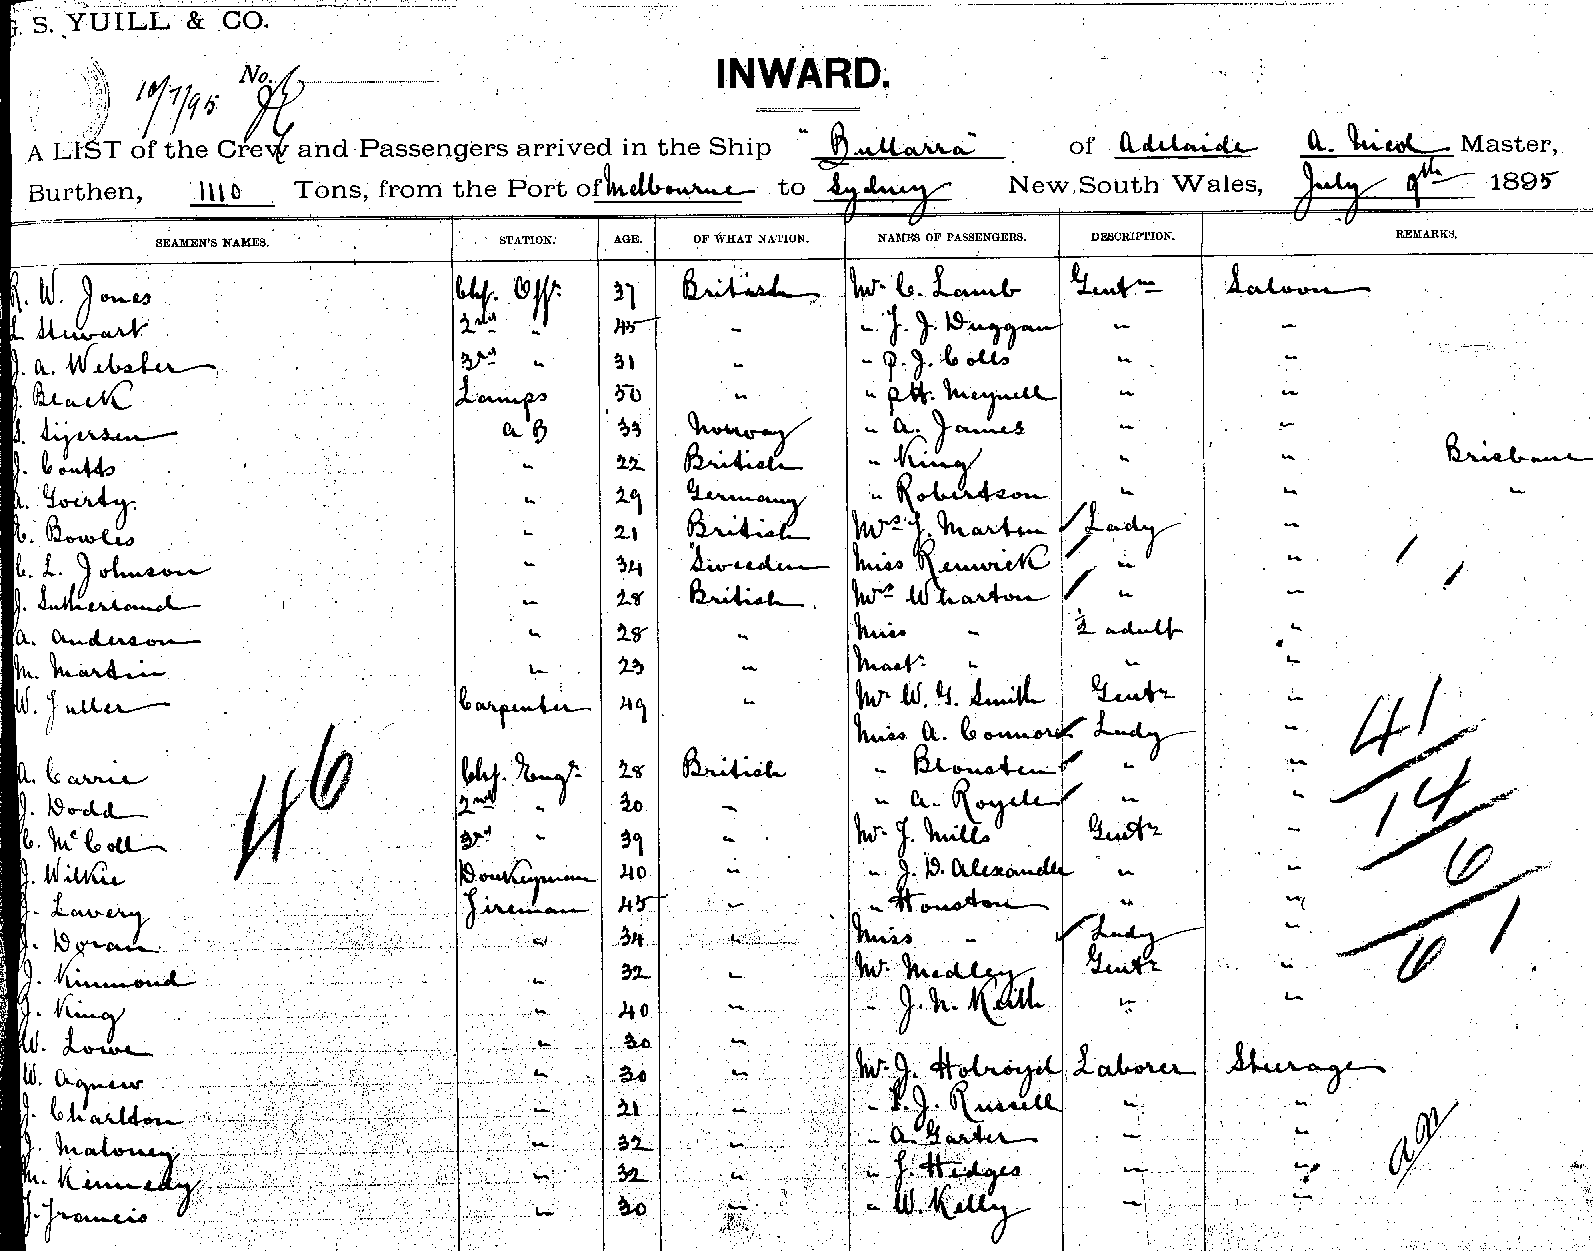 S. YUILL & CO.
No.
10/7/95
INWARD.
A LIST of the Crew and Passengers arrived in the Ship "Bullarra" of Adelaide A. Nicol Master,
Burthen, 1110 Tons, from the Port of Melbourne to Sydney New South Wales, July 9th 1895
SEAMEN'S NAMES. STATION. AGE. OF WHAT NATION. NAMES OF PASSENGERS. DESCRIPTION. REMARKS.
R. W. Jones Chf. Offr. 37 British Mr C. Lamb Gentm Saloon
L Stewart 2nd " 45 " " J. J. Duggan " "
J. A. Webster 3rd " 31 " " P. J. Colls " "
J. Black Lamps 50 " " P H. Meynell " "
S. Sijersen A B 33 Norway " A. James " "
J. Coutts " 22 British " King " " Brisbane
A. Goerty. " 29 Germany " Robertson " " "
E. Bowles " 21 British Mrs J. Marten Lady "
C. L. Johnson " 34 Sweeden Miss Renwick " "
J. Sutherland " 28 British Mrs Wharton " "
A. Anderson " 28 " Miss " ½ adult "
M. Martin " 23 " Mastr " " "
W. Fuller Carpenter 49 " Mr W. G. Smith Gentn "
Miss A. Connors Lady "
41
A. Carrie Chf. Engr. 28 British " Blousten " "
46
J. Dodd 2nd " 30 " " A. Royele " "
14
C. McColl 3rd " 39 " Mr J. Mills Gentn "
J. Wilkie Donkeyman 40 " " J. D. Alexander " "
6
J. Lavery Fireman 45 " " Houston " "
J. Doran " 34 " Miss " Lady "
61
J. Kinmond " 32 " Mr Medley Gentn "
J. King " 40 " " J. N. Keith " "
W. Lowe " 30 "
W. Agnew " 30 " Mr J. Holroyd Laborer Steerage
J. Charldon " 21 " " P. J. Russell " "
J. Maloney " 32 " " A. Garter " "
M. Kennedy " 32 " " J. Hedges " "
J. Francis " 30 " " W. Kelly " "